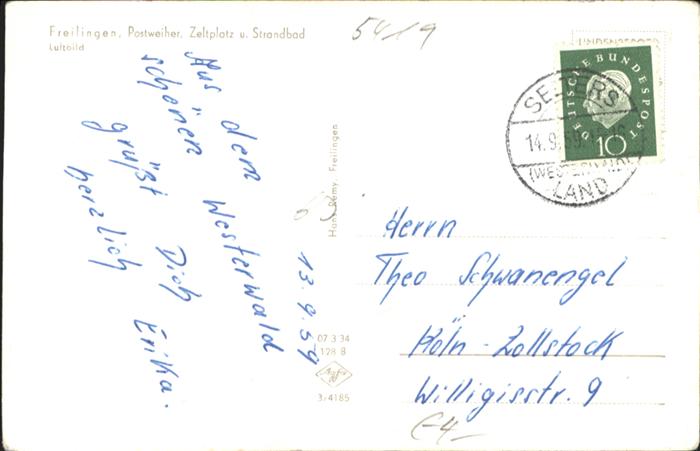 Freilingen, Postweiher, Zeltplatz u. Strandbad
Luftbild
5419
Aus dem Westerwald 13.9.59
schönen
grüßt Dich Erika.
herzlich
Hans Remy, Freilingen
07 3 34
128 B
Agfa
3/4185
DEUTSCHE BUNDESPOST
10
SELTERS
14.9.59
(WESTERWALD)
LAND
Herrn
Theo Schwanengel
Köln-Zollstock
Willigisstr. 9